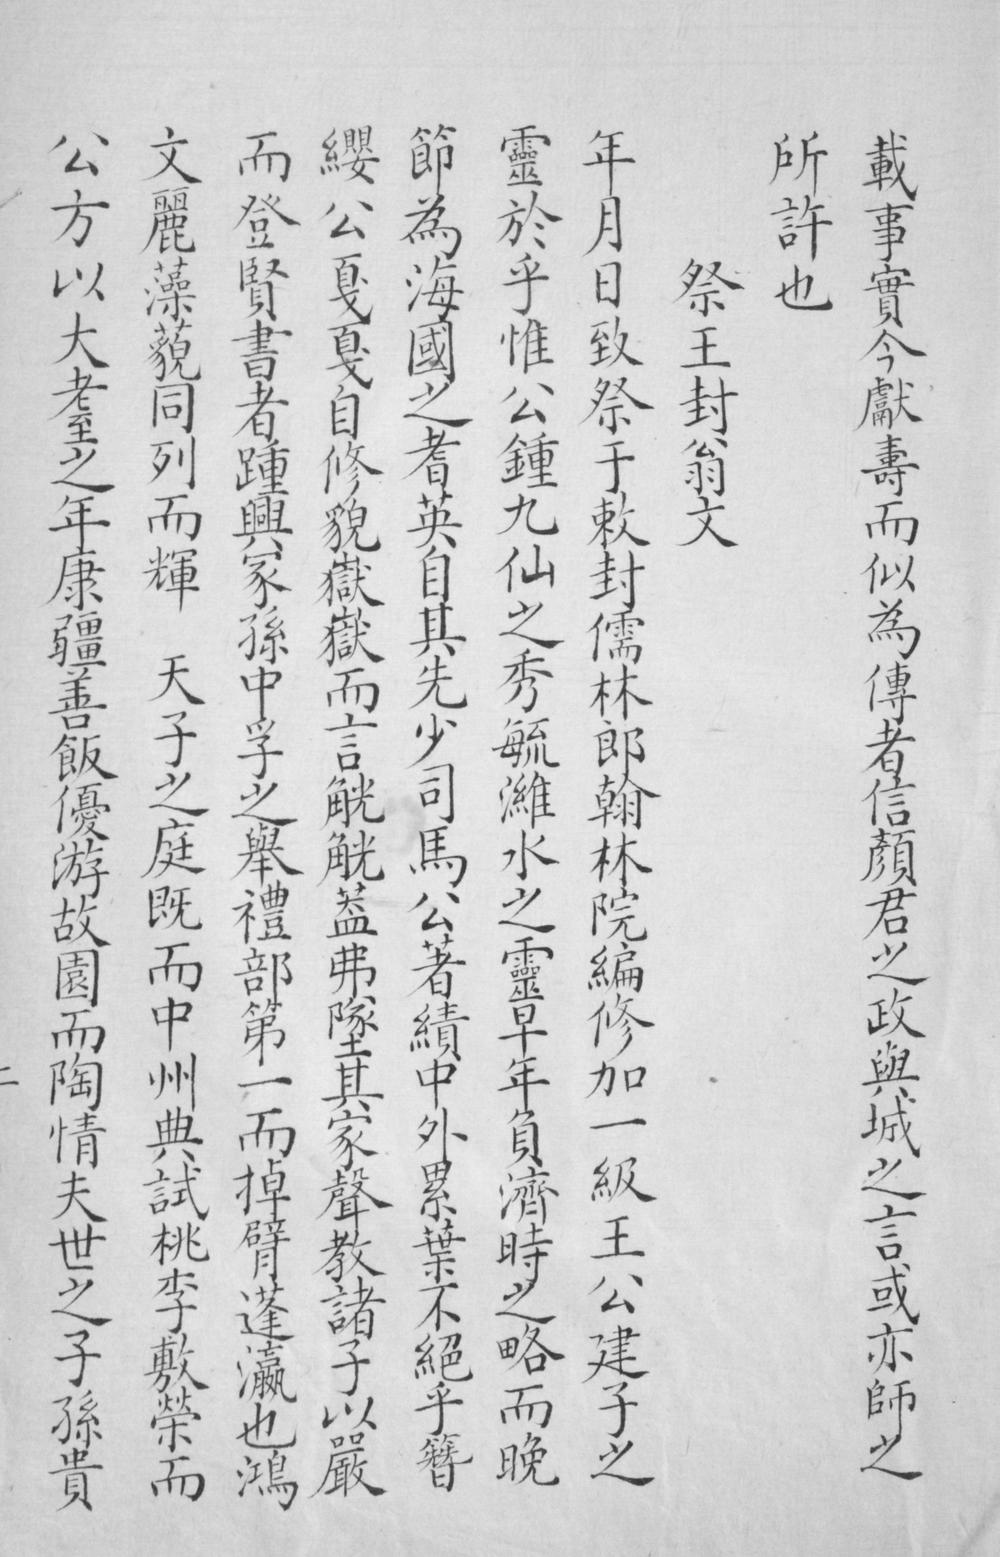 載事實今獻壽而似為傳者信顏君之政與城之言或亦師之
所許也
祭王封翁文
年月日致祭于敕封儒林郎翰林院編修加一級王公建子之
靈於乎惟公鍾九仙之秀毓濰水之靈早年負濟時之略而晚
節為海國之耆英自其先少司馬公著績中外累葉不絕乎簪
纓公戞戞自修貌嶽嶽而言觥觥蓋弗墜其家聲教諸子以嚴
而登賢書者踵興冢孫中孚之舉禮部第一而掉臂蓬瀛也鴻
文麗藻藐同列而輝 天子之庭既而中州典試桃李敷榮而
公方以大耋之年康彊善飯優游故園而陶情夫世之子孫貴
二